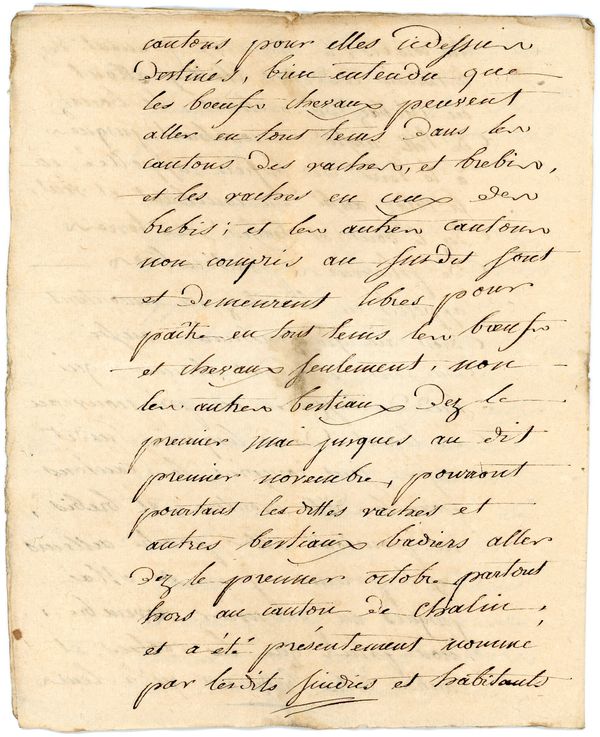 cantons pour elles icdessus
destinés, bien entendu que
les bœufs chevaux peuvent
aller en tout tems dans les
cantons des vaches, et brebis,
et les vaches en ceux des
brebis; et les autres cantons
non compris au susdit sont
et demeurent libres pour
paître en tout tems les bœufs
et chevaux seulement, non
les autres bestiaux dez le
premier mai jusques au dit
premier novembre, pourront
pourtant les dittes vaches et
autres bestiaux aller
dez le premier octobre partout
hors au canton de Chalin,
et a été présentement nommé
par lesdits sindics et habitants